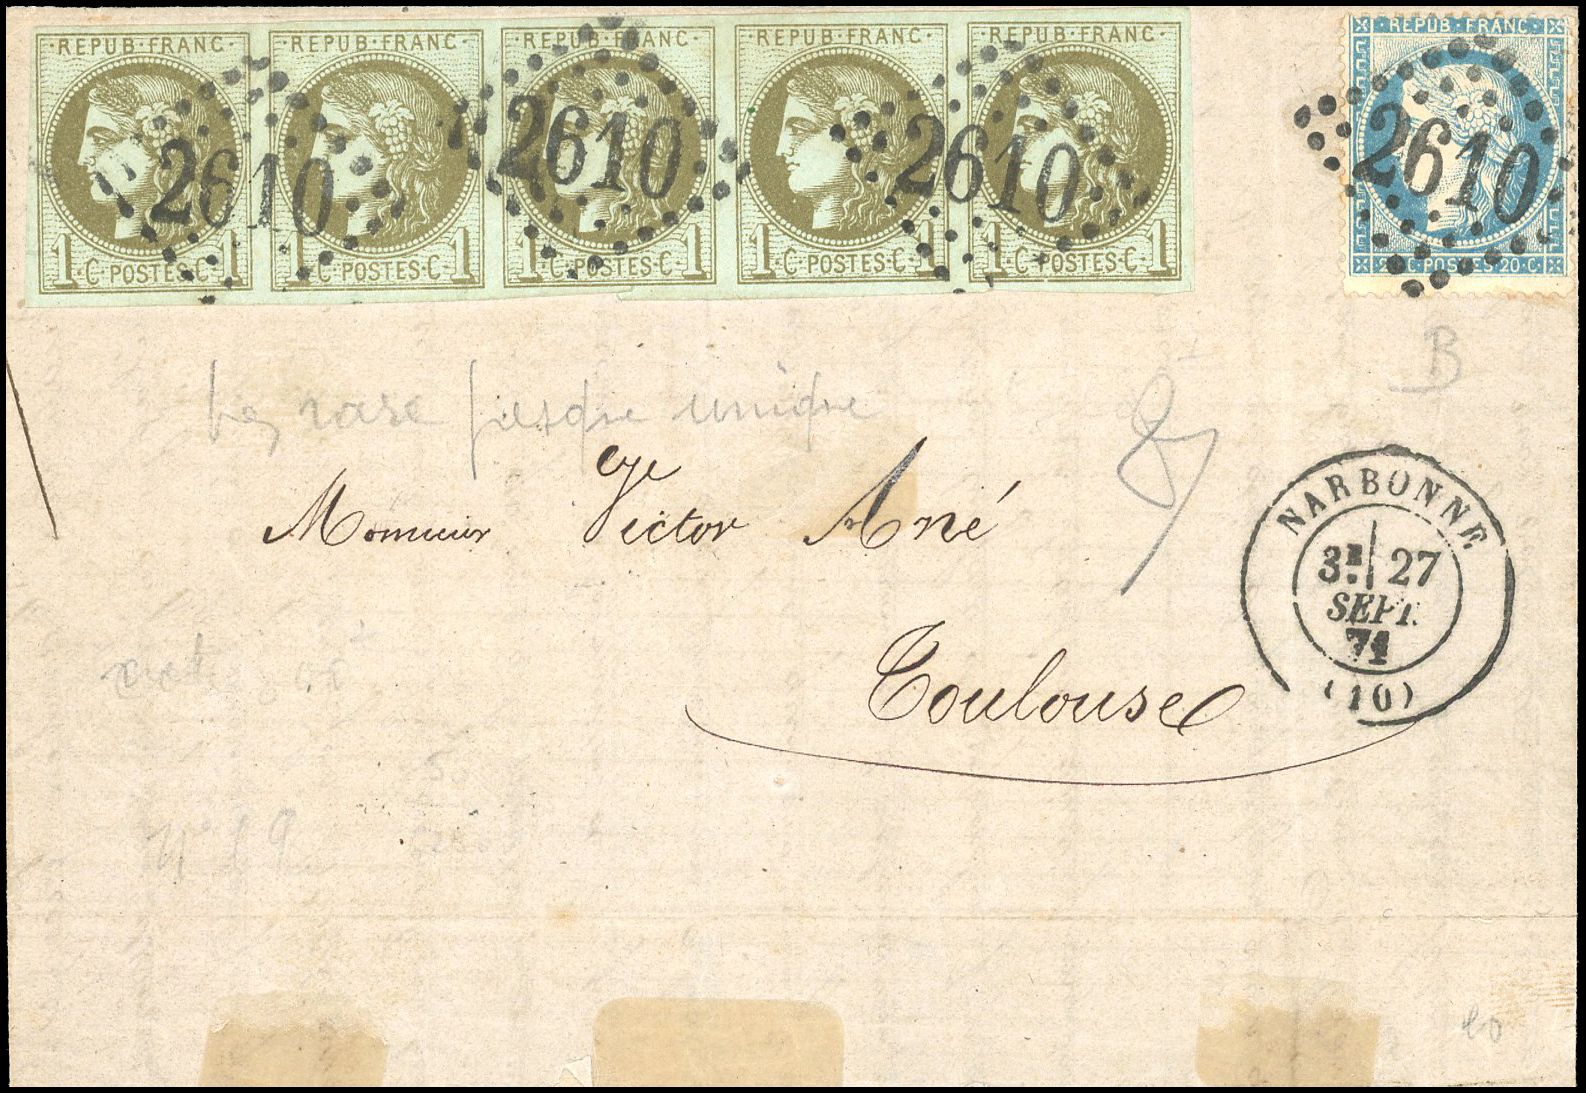 REPUB·FRANC· REPUB·FRANC· REPUB·FRANC· REPUB·FRANC· REPUB·FRANC· REPUB·FRANC·
2610 2610 2610 2610
1·C·POSTES·C·1 1·C·POSTES·C·1 1·C·POSTES·C·1 1·C·POSTES·C·1 1·C·POSTES·C·1 20·C·POSTES·20·C·
B
très rare presque unique
NARBONNE
3E 27
SEPT.
71
(10)
Monsieur Victor Ané
Toulouse
50